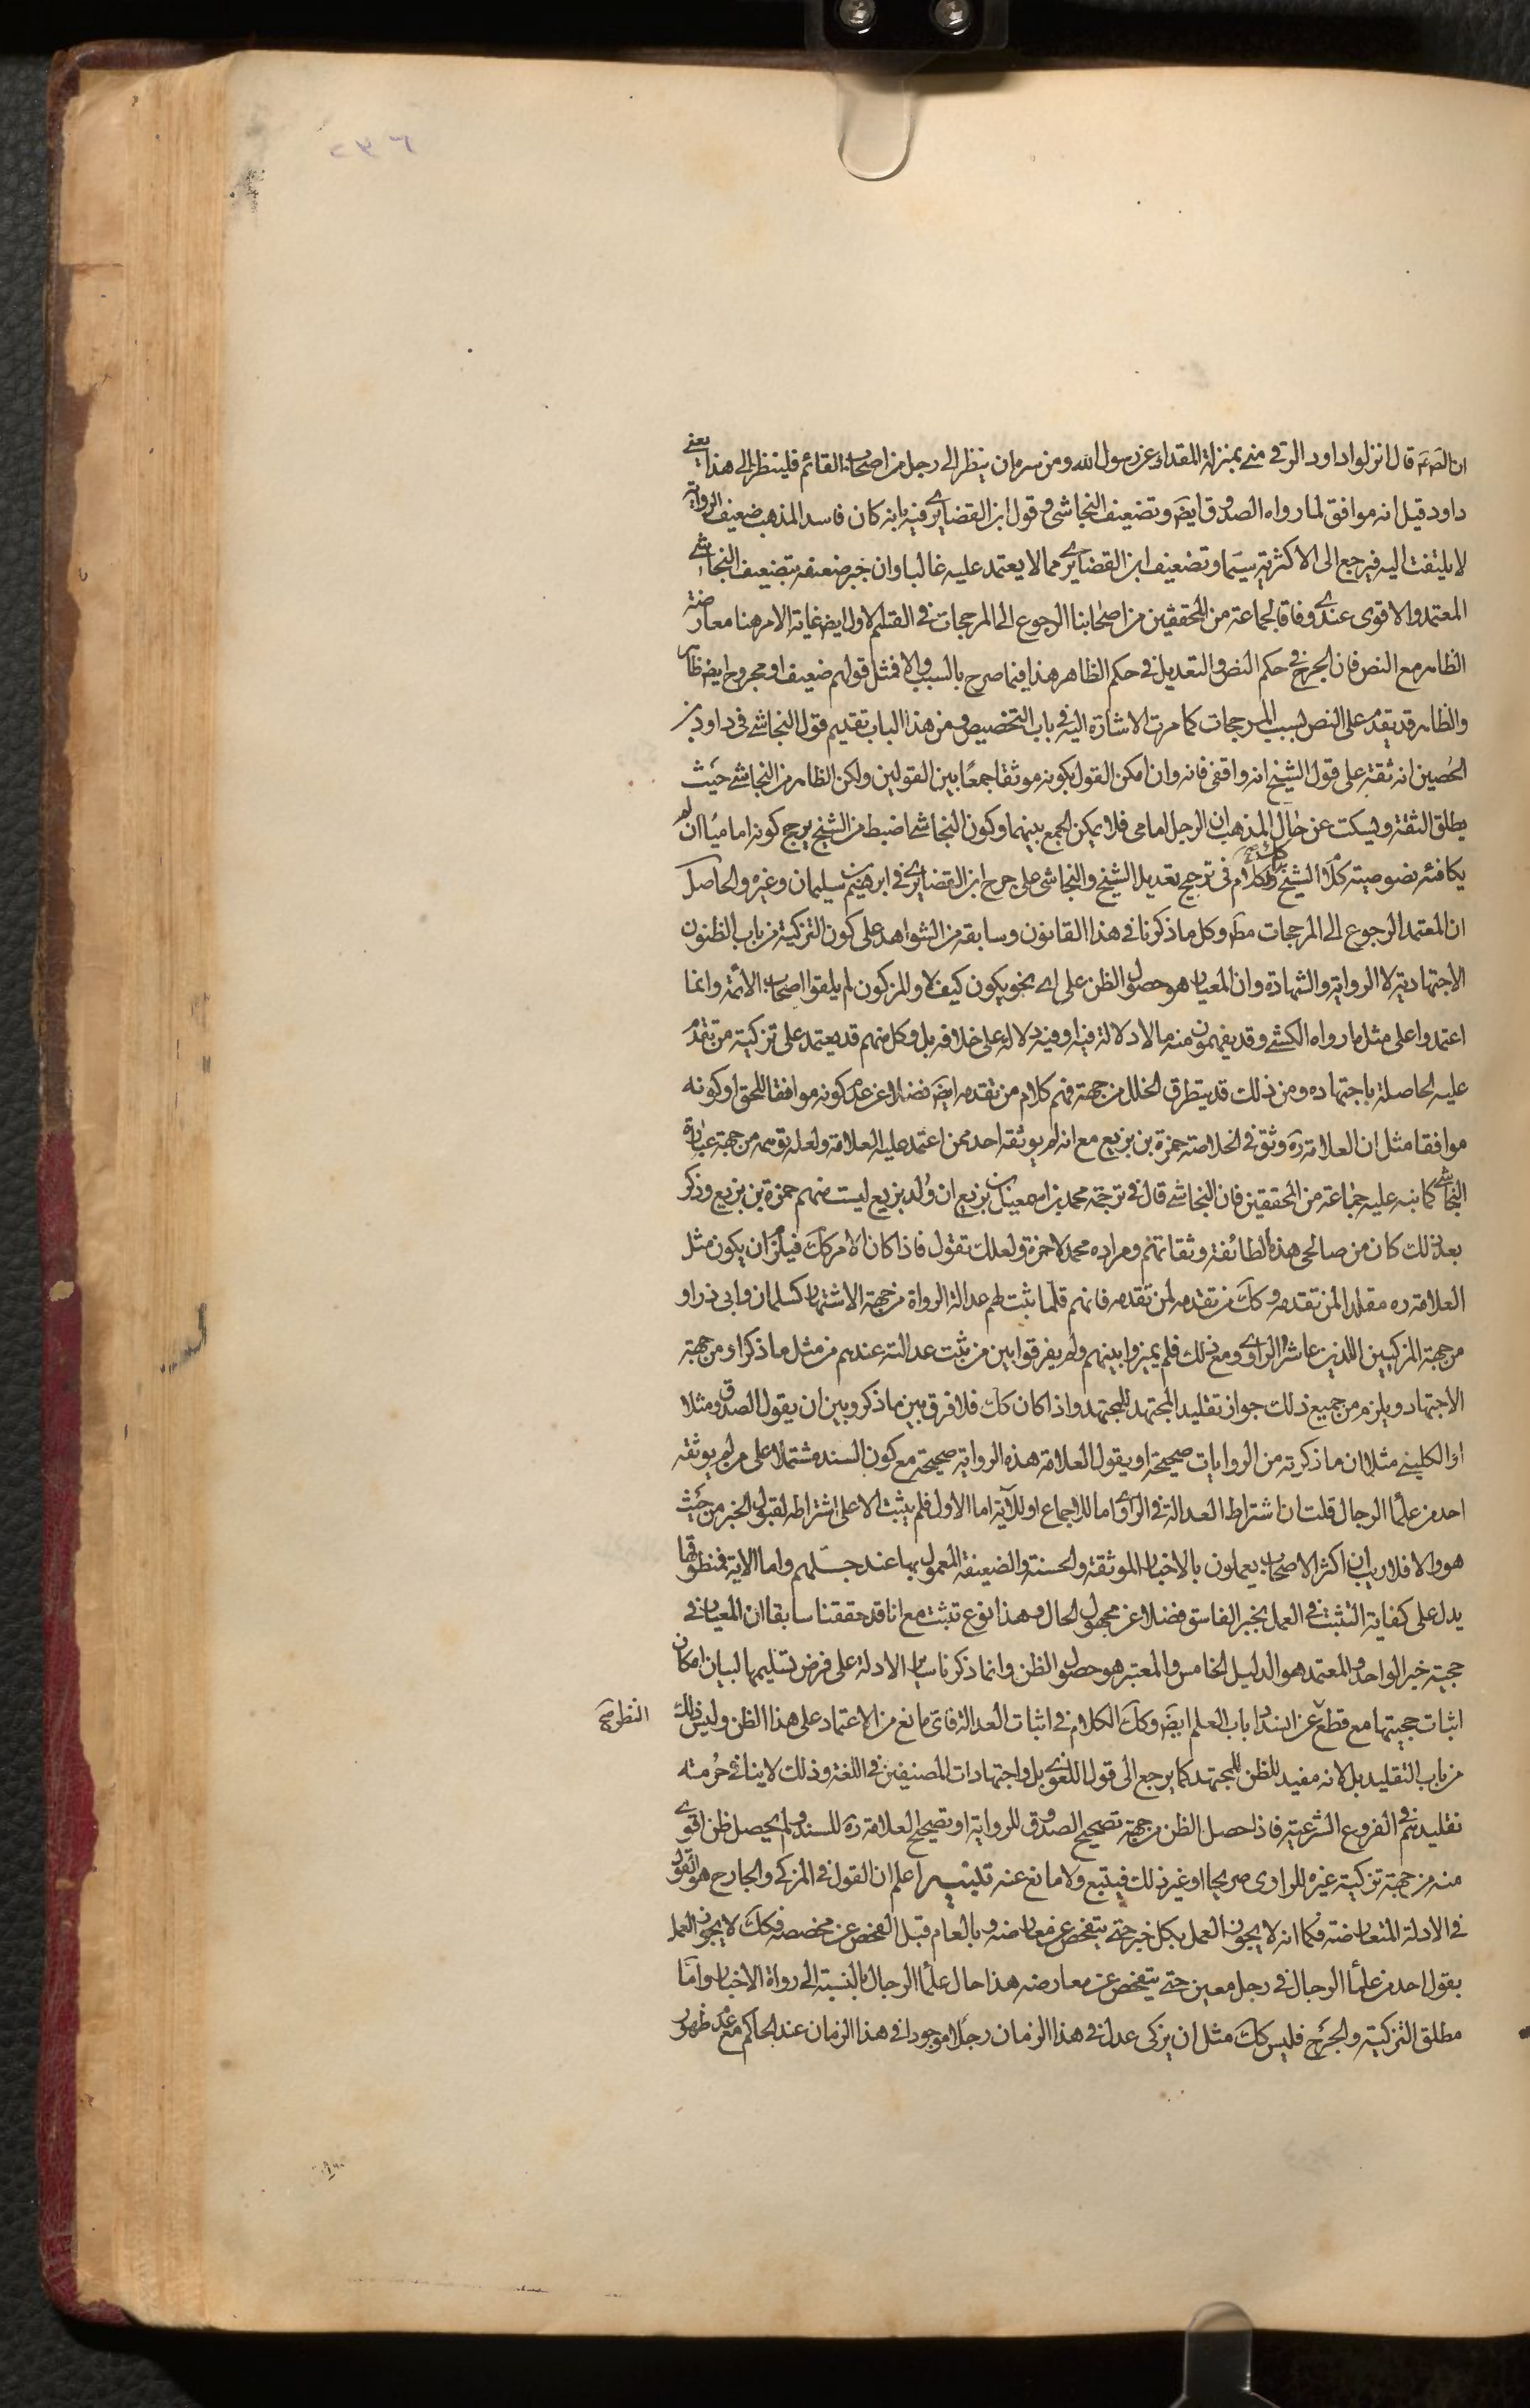 ان الصّ ع قال انزلوا داود الرقی منی بمنزلة المقداد عن رسول الله و من سره ان ینظر الی رجل من اصحاب القائم فلینظر الی هذا یعنی
داود قیل انه موافق لما رواه الصدوق ایضَ و تضعیف النجاشی و قول ابن الغضایری فیه بانه کان فاسد المذهب ضعیف الروایة
لا یلتفت الیه فیرجع الی الاکثریة سیما و تضعیف ابن الغضایری مما لا یعتمد علیه غالبا وان جبر ضعفه بتضعیف النجاشی
المعتمد والاقوی عندی وفاقا لجماعة من المحققین من اصحابنا الرجوع الی المرجحات فی القسم الاول ایضَ غایة الامر هنا معارضة
الظاهر مع النص فان الجرح فی حکم النص والتعدیل فی حکم الظاهر هذا فیما صرح بالسبب والا فمثل قولهم ضعیف او مجروح ایضَ ظاهر
والظاهر قد یقدم علی النص بسبب المرجحات کما مرت الاشارة الیه فی باب التخصیص ومن هذا الباب تقدیم قول النجاشی فی داود بن
الحصین انه ثقة علی قول الشیخ انه واقفی فانه وان امکن القول بکونه موثقا جمعًا بین القولین ولکن الظاهر من النجاشی حیث
یطلق الثقة ویسکت عن حال المذهب ان الرجل امامی فلا یمکن الجمع بینهما وکون النجاشی اضبط من الشیخ یرجح کونه امامیًا ان لم
یکافئه نصوصیته کلام الشیخ وکذلک الکلام فی ترجیح تعدیل الشیخ والنجاشی علی جرح ابن الغضایری فی ابرهیم بن سلیمان وغیره والحاصل
ان المعتمد الرجوع الی المرجحات مطَ وکل ما ذکرنا فی هذا القانون وسابقه من الشواهد علی کون التزکیة من باب الظنون
الاجتهادیة لا الروایة والشهادة وان المعیار هو حصول الظن علی ای نحو یکون کیف لا والمزکون لم یلقوا اصحاب الائمة وانما
اعتمدوا علی مثل ما رواه الکشی وقد یفهمون منه ما لا دلالة فیه او فیه دلالة علی خلافه بل وکل منهم قد یعتمد علی تزکیة من تقدم
علیه الحاصلة باجتهاده ومن ذلک قد یتطرق الخلل من جهة فهم کلام من تقدمه ایضَ فضلا عن عدم کونه موافقا للحق او کونه
موافقا مثل ان العلامة ره وثق فی الخلاصة حمزة بن بزیع مع انه لم یوثقه احد ممن اعتمد علیه العلامة ولعله توهمه من جهة عبارة
النجاشی کما نبه علیه جماعة من المحققین فان النجاشی قال فی ترجمة محمد بن اسمعیل بن بزیع ان ولد بزیع لیت منهم حمزة بن بزیع وذکر
بعد ذلک کان من صالحی هذه الطائفة وثقاتهم ومراده محمد لا حمزة ولعلک تقول فاذا کان الامر کک فیلزم ان یکون مثل
العلامة ره مقلدا لمن تقدمه وکک من تقدمه لمن تقدمه فانهم قلما ثبت لهم عدالة الرواة من جهة الاشتهار کسلمان وابی ذر او
من جهة المزکیین اللذین عاشروا الراوی ومع ذلک فلم یمیزوا بینهم ولم یفرقوا بین من ثبت عدالته عندهم من مثل ما ذکر او من جهة
الاجتهاد ویلزم من جمیع ذلک جواز تقلید المجتهد للمجتهد واذا کان کک فلا فرق بین ما ذکر وبین ان یقول الصدوق مثلا
او الکلینی مثلا ان ما ذکرته من الروایات صحیحة او یقول العلامة هذه الروایة صحیحة مع کون السند مشتملا علی من لم یوثقه
احد من علما الرجال قلت ان اشتراط العدالة فی الراوی اما للاجماع او للآیة اما الاول فلم یثبت الا علی اشتراطه لقبول الخبر من حیث
هو والا فلا ریب ان اکثر الاصحاب یعملون بالاخبار الموثقة والحسنة والضعیفة المعمول بها عند جلهم واما الایة فمنطوقها
یدل علی کفایة التثبت فی العمل بخبر الفاسق فضلا عن مجهول الحال وهذا نوع تثبت مع انا قد حققنا سابقا ان المعیار فی
حجیة خبر الواحد والمعتمد هو الدلیل الخامس والمعتبر هو حصول الظن وانما ذکرنا سایر الادلة علی فرض تسلیمها لبیان امکان
اثبات حجیتها مع قطع عن انسداد باب العلم ایضَ وکک الکلام فی اثبات العدالة فای مانع من الاعتماد علی هذا الظن ولیس ذلک
النظر صح
من باب التقلید بل لانه مفید للظن للمجتهد کما یرجع الی قول اللغوی بل واجتهادات المصنفین فی اللغة وذلک لا ینافی حرمته
تقلیدهم فی الفروع الشرعیة فاذا حصل الظن من جهة تصحیح الصدوق للروایة او تصحیح العلامة ره للسند ولم یحصل ظن اقوی
منه من جهة تزکیة غیره للراوی صریحا او غیر ذلک فیتبع ولا مانع عنه تنبیه اعلم ان القول فی المزکی والجارح هو القول
فی الادلة المتعارضة فکما انه لا یجوز العمل بکل خبر حتی یتفحص عن معارضه وبالعام قبل الفحص عن مخصصه فکک لا یجوز العمل
بقول احد من علما الرجال فی رجل معین حتی یتفحص عن معارضه هذا حال علما الرجال بالنسبة الی رواة الاخبار واما
مطلق التزکیة والجرح فلیس کک مثل ان یزکی عدل فی هذا الزمان رجلا موجودا فی هذا الزمان عند الحاکم مع عدم ظهور